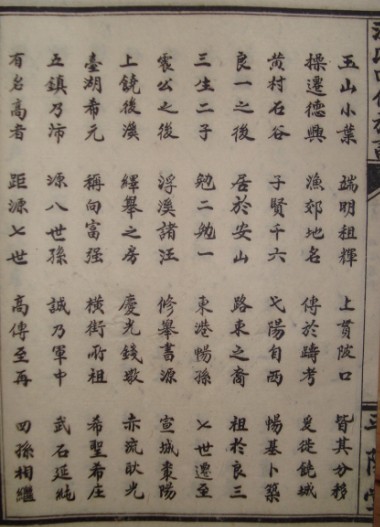 玉山小葉 端明祖輝 上貫陂口 皆其分移
操遷德興 漁郊地名 傳於疇考 徙饒城
黄村石谷 子賢千六 弋陽自西 暢基卜築
良一之後 居於安山 路東之裔 祖於良三
三生二子 勉二勉一 東港暢孫 七世遷至
震公之後 浮溪諸汪 修舉書源 宣城棗陽
上饒後溪 繹舉之房 慶光錢墩 赤流耿光
臺湖希元 稱向富强 橫街府祖 希聖希庄
五鎮乃沛 源八世孫 誠乃軍中 武石延純
有名高者 距源七世 高傳至再 四孫相繼